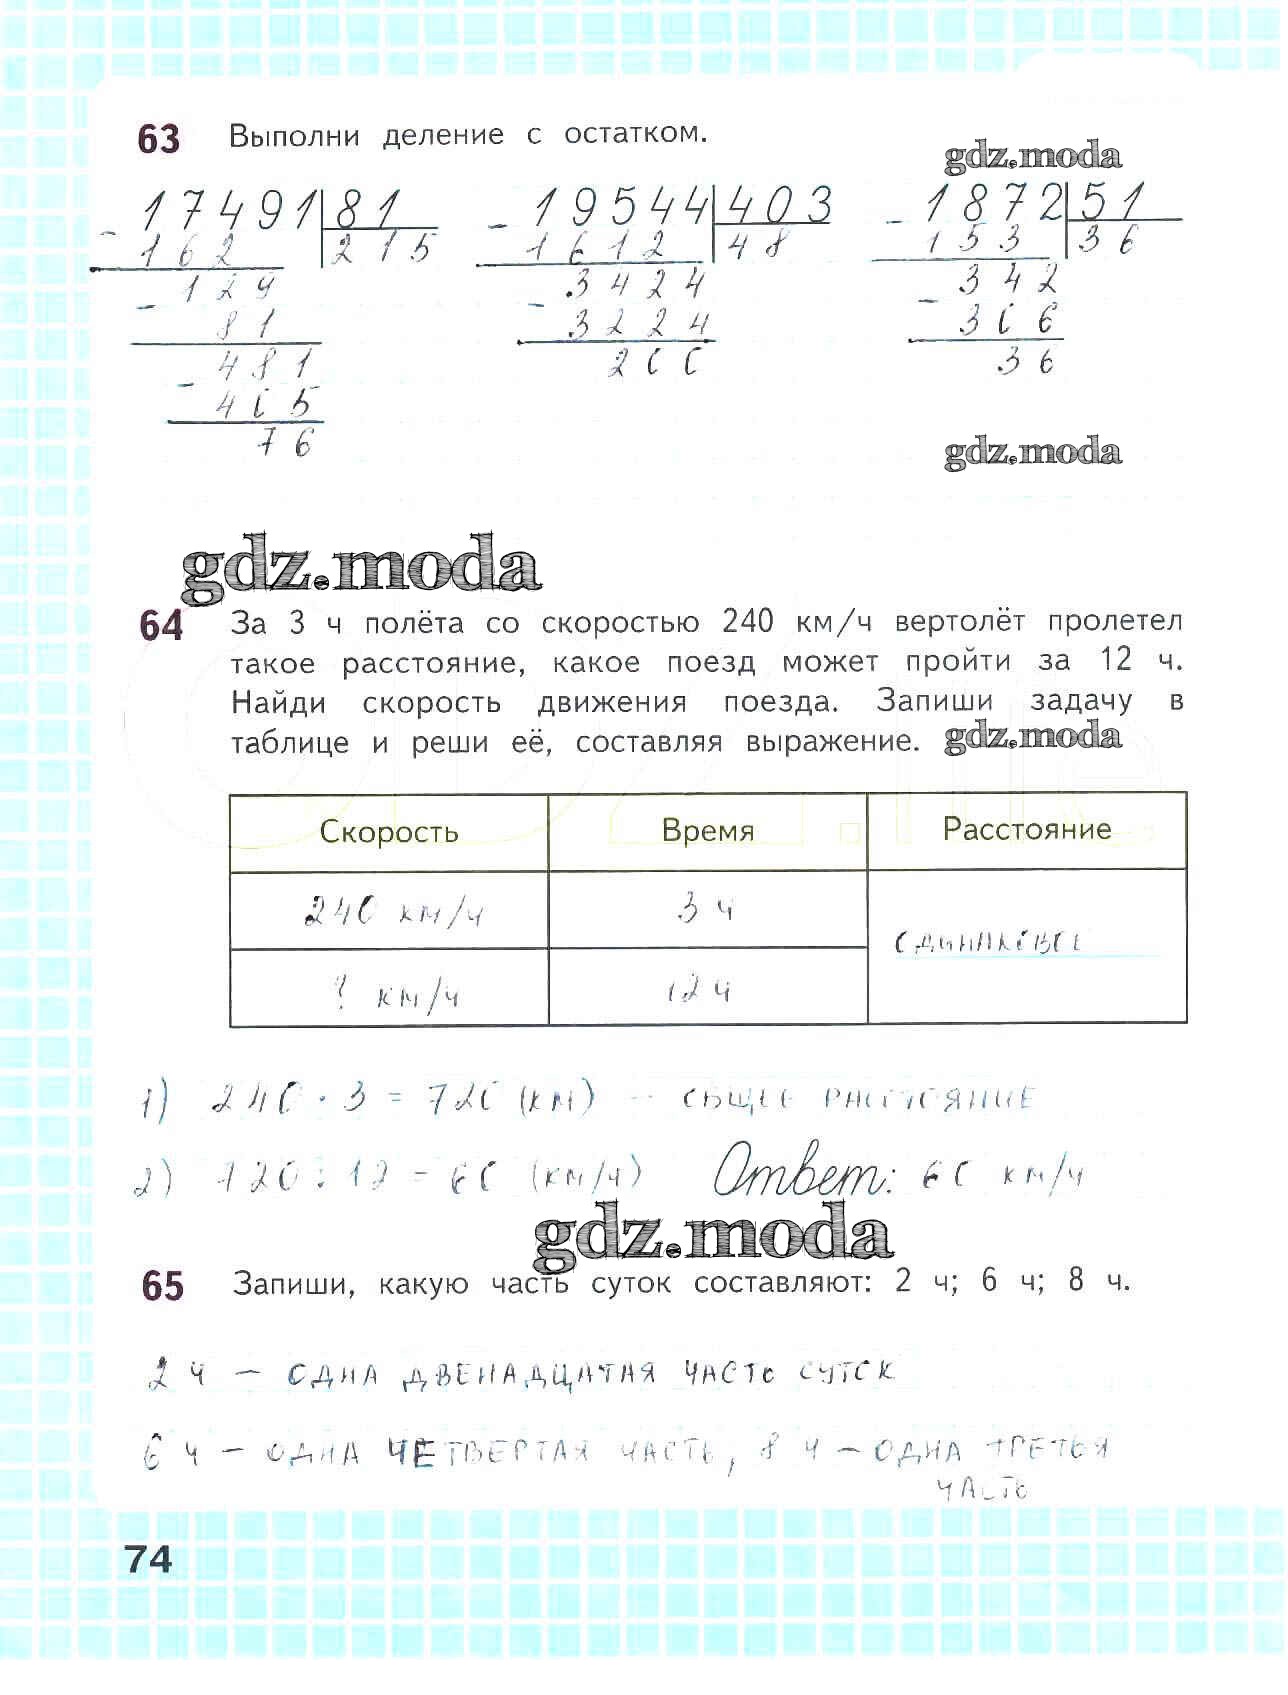 63 Выполни деление с остатком.
gdz.moda
- 17491 | 81 - 19544 | 403 - 1872 | 51
162 215 1612 48 153 36
- 129 - 3424 - 342
81 3224 306
- 481 200 36
405
76
gdz.moda
gdz.moda
64 За 3 ч полёта со скоростью 240 км/ч вертолёт пролетел
такое расстояние, какое поезд может пройти за 12 ч.
Найди скорость движения поезда. Запиши задачу в
таблице и реши её, составляя выражение. gdz.moda
Скорость Время Расстояние
240 км/ч 3 ч
одинаковое
? км/ч 12 ч
1) 240 · 3 = 720 (км) - общее расстояние
2) 720 : 12 = 60 (км/ч) Ответ: 60 км/ч
gdz.moda
65 Запиши, какую часть суток составляют: 2 ч; 6 ч; 8 ч.
2 ч - одна двенадцатая часть суток
6 ч - одна четвертая часть, 8 ч - одна третья
часть
74